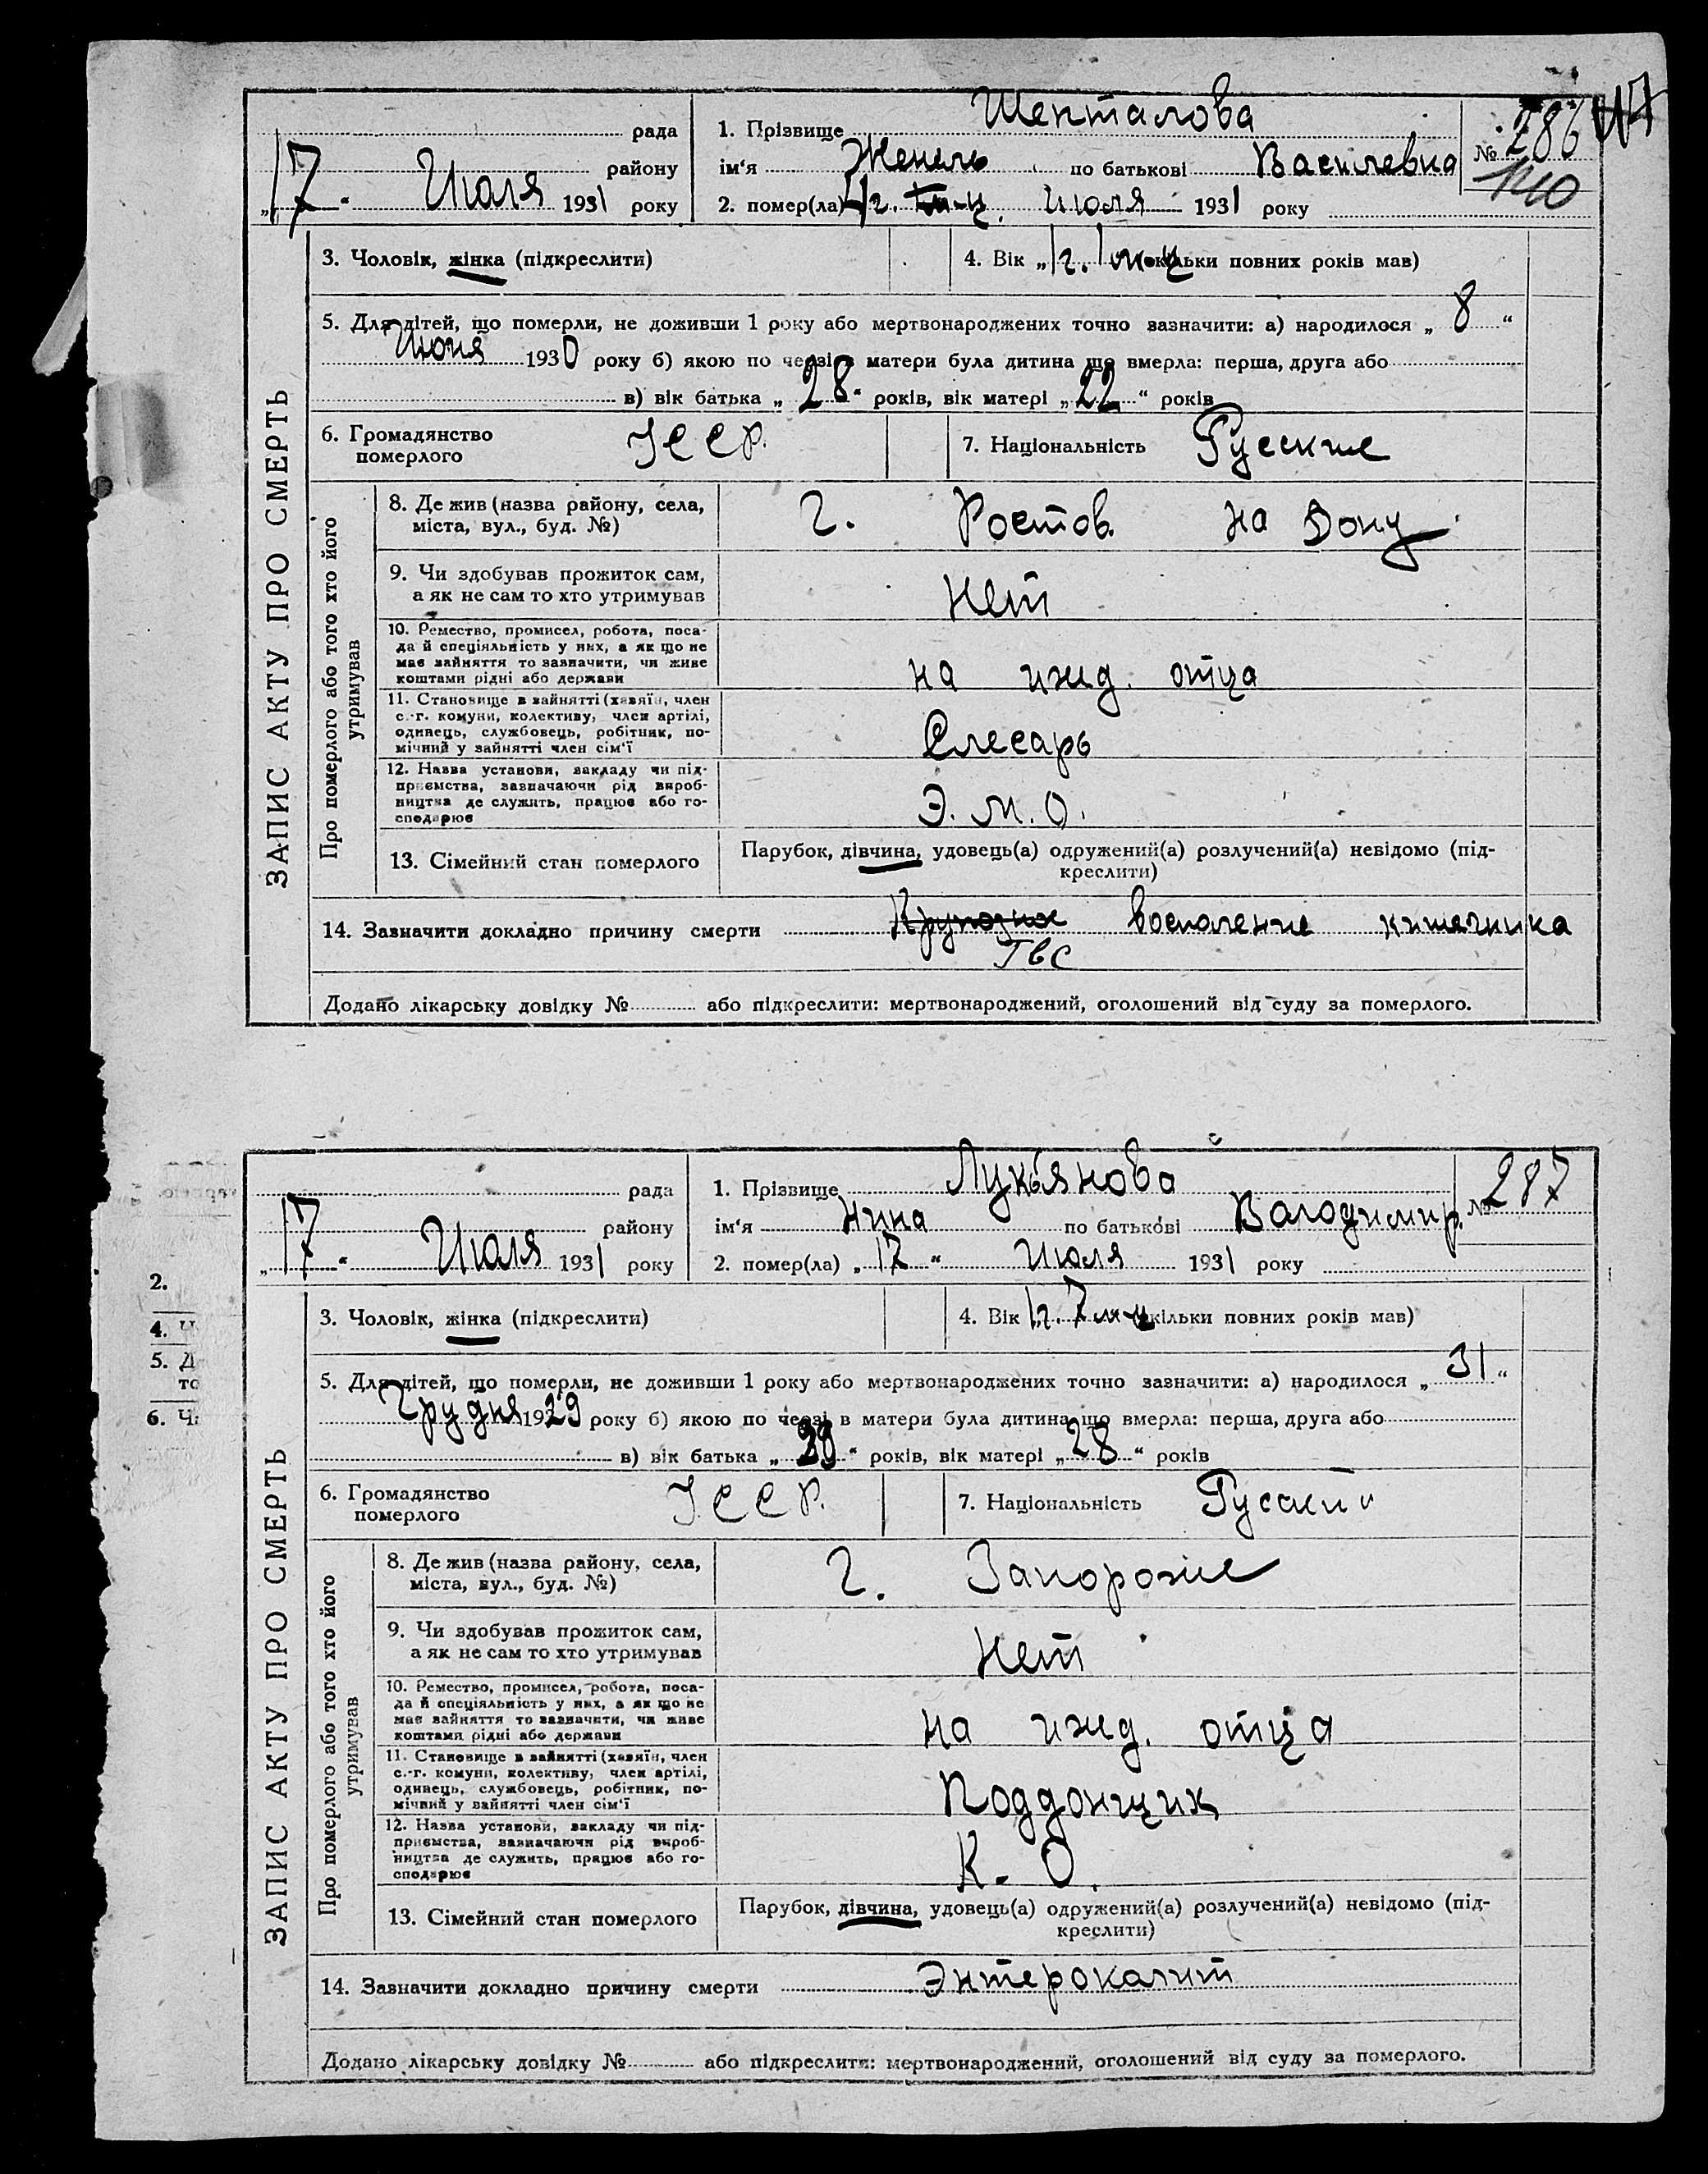 рада
району
17 Июля 1931 року
1. Прізвище Шенталова
ім'я Женель по батькові Василевна
№ 286
140
2. помер(ла) июля 1931 року
ЗАПИС АКТУ ПРО СМЕРТЬ
3. Чоловік, жінка (підкреслити)
4. Вік „1 г. 1 м-ц (скільки повних років мав)
5. Для дітей, що померли, не доживши 1 року або мертвонароджених точно зазначити: а) народилося „8“
Июня 1930 року б) якою по черзі в матери була дитина що вмерла: перша, друга або
в) вік батька „28“ років, вік матері „22“ років
6. Громадянство
померлого
УССР.
7. Національність Русские
Про померлого або того хто його
утримував
8. Де жив (назва району, села,
міста, вул., буд. №)
г. Ростов на Дону
9. Чи здобував прожиток сам,
а як не сам то хто утримував
Нет
10. Ремество, промисел, робота, поса-
да й спеціяльність у них, а як що не
має зайняття то зазначити, чи живе
коштами рідні або держави
на ижд. отца
11. Становище в зайнятті (хазяїн, член
с.-г. комуни, колективу, член артілі,
одинець, службовець, робітник, по-
мічний у зайнятті член сім'ї
Слесарь
12. Назва установи, закладу чи під-
приємства, зазначаючи рід вироб-
ництва де служить, працює або го-
сподарює
Э. М. О.
13. Сімейний стан померлого
Парубок, дівчина, удовець(а) одружений(а) розлучений(а) невідомо (під-
креслити)
14. Зазначити докладно причину смерти Крупозное восполение кишечника
ТВС
Додано лікарську довідку № або підкреслити: мертвонароджений, оголошений від суду за померлого.
рада
району
17 Июля 1931 року
1. Прізвище Лукьянова
ім'я Нина по батькові Володимир.
№ 287
2. помер(ла) „17“ Июля 1931 року
ЗАПИС АКТУ ПРО СМЕРТЬ
3. Чоловік, жінка (підкреслити)
4. Вік „1 г. 7 м-ц (скільки повних років мав)
5. Для дітей, що померли, не доживши 1 року або мертвонароджених точно зазначити: а) народилося „31“
Грудня 1929 року б) якою по черзі в матери була дитина що вмерла: перша, друга або
в) вік батька „29“ років, вік матері „28“ років
6. Громадянство
померлого
УССР.
7. Національність Русский
Про померлого або того хто його
утримував
8. Де жив (назва району, села,
міста, вул., буд. №)
г. Запорожие
9. Чи здобував прожиток сам,
а як не сам то хто утримував
Нет
10. Ремество, промисел, робота, поса-
да й спеціяльність у них, а як що не
має зайняття то зазначити, чи живе
коштами рідні або держави
на ижд. отца
11. Становище в зайнятті (хазяїн, член
с.-г. комуни, колективу, член артілі,
одинець, службовець, робітник, по-
мічний у зайнятті член сім'ї
Поддонщик
12. Назва установи, закладу чи під-
приємства, зазначаючи рід вироб-
ництва де служить, працює або го-
сподарює
К. О.
13. Сімейний стан померлого
Парубок, дівчина, удовець(а) одружений(а) розлучений(а) невідомо (під-
креслити)
14. Зазначити докладно причину смерти Энтероколит
Додано лікарську довідку № або підкреслити: мертвонароджений, оголошений від суду за померлого.
2.
4.
5. Д
то
6. Чи